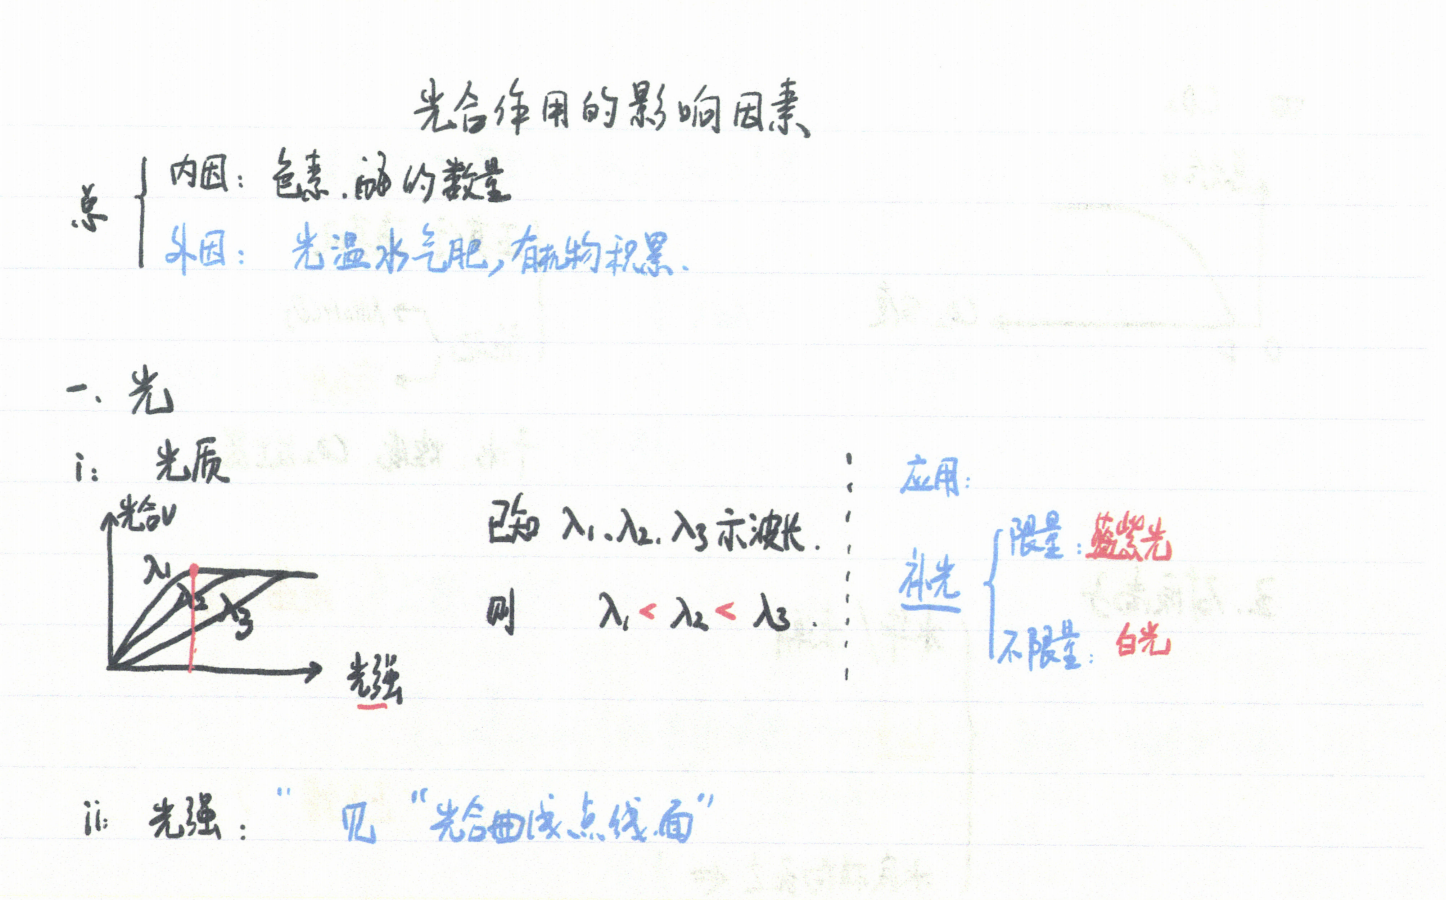 光合作用的影响因素
总
内因：色素.酶的数量
外因：光温水气肥,有机物积累.
一、光
i: 光质
光合V
λ1
λ2
λ3
光强
已知 λ1、λ2、λ3示波长.
则 λ1 < λ2 < λ3.
应用:
补光
限量:蓝紫光
不限量: 白光
ii: 光强: " 见 "光合曲线点线面"